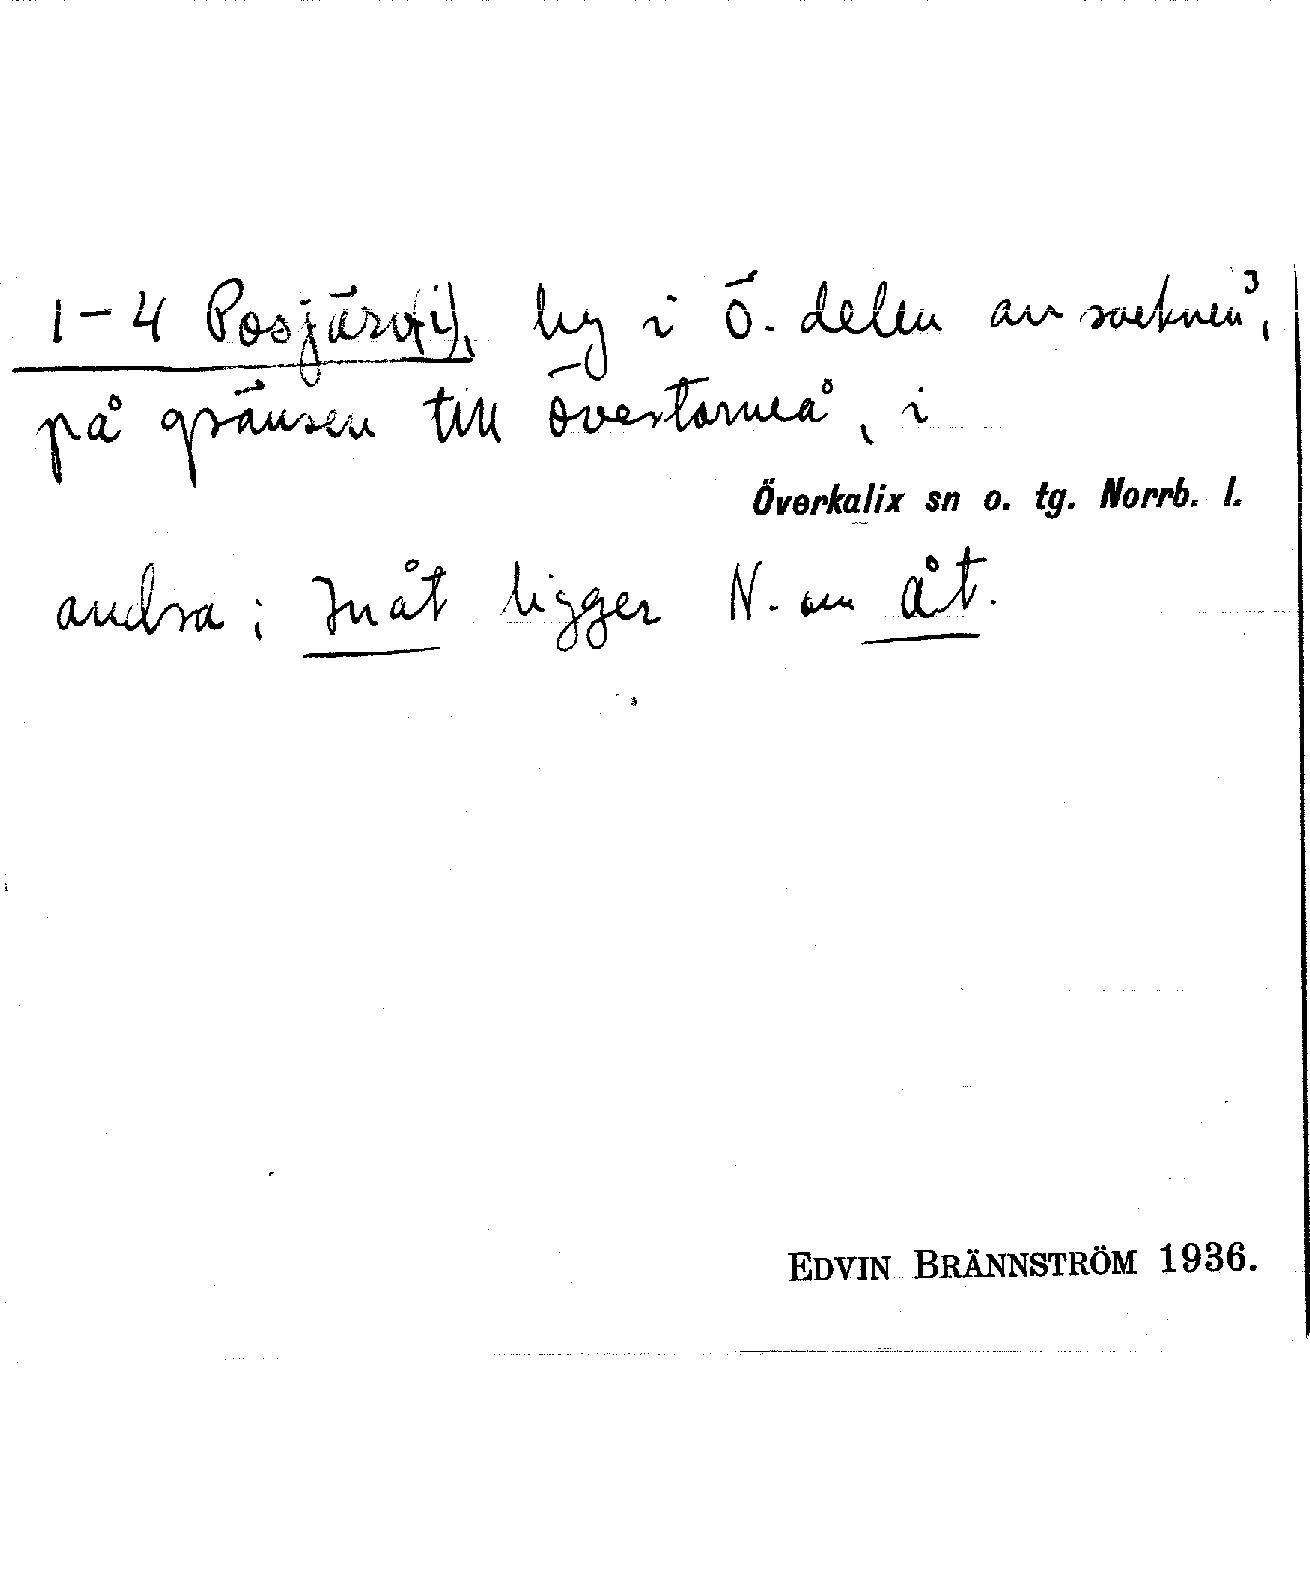 1-4 Posjärv(i), by i Ö. delen av socknen³,
på gränsen till Övertorneå, i
Överkalix sn o. tg. Norrb. l.
andra; Inåt ligger N. om åt.
EDVIN BRÄNNSTRÖM 1936.